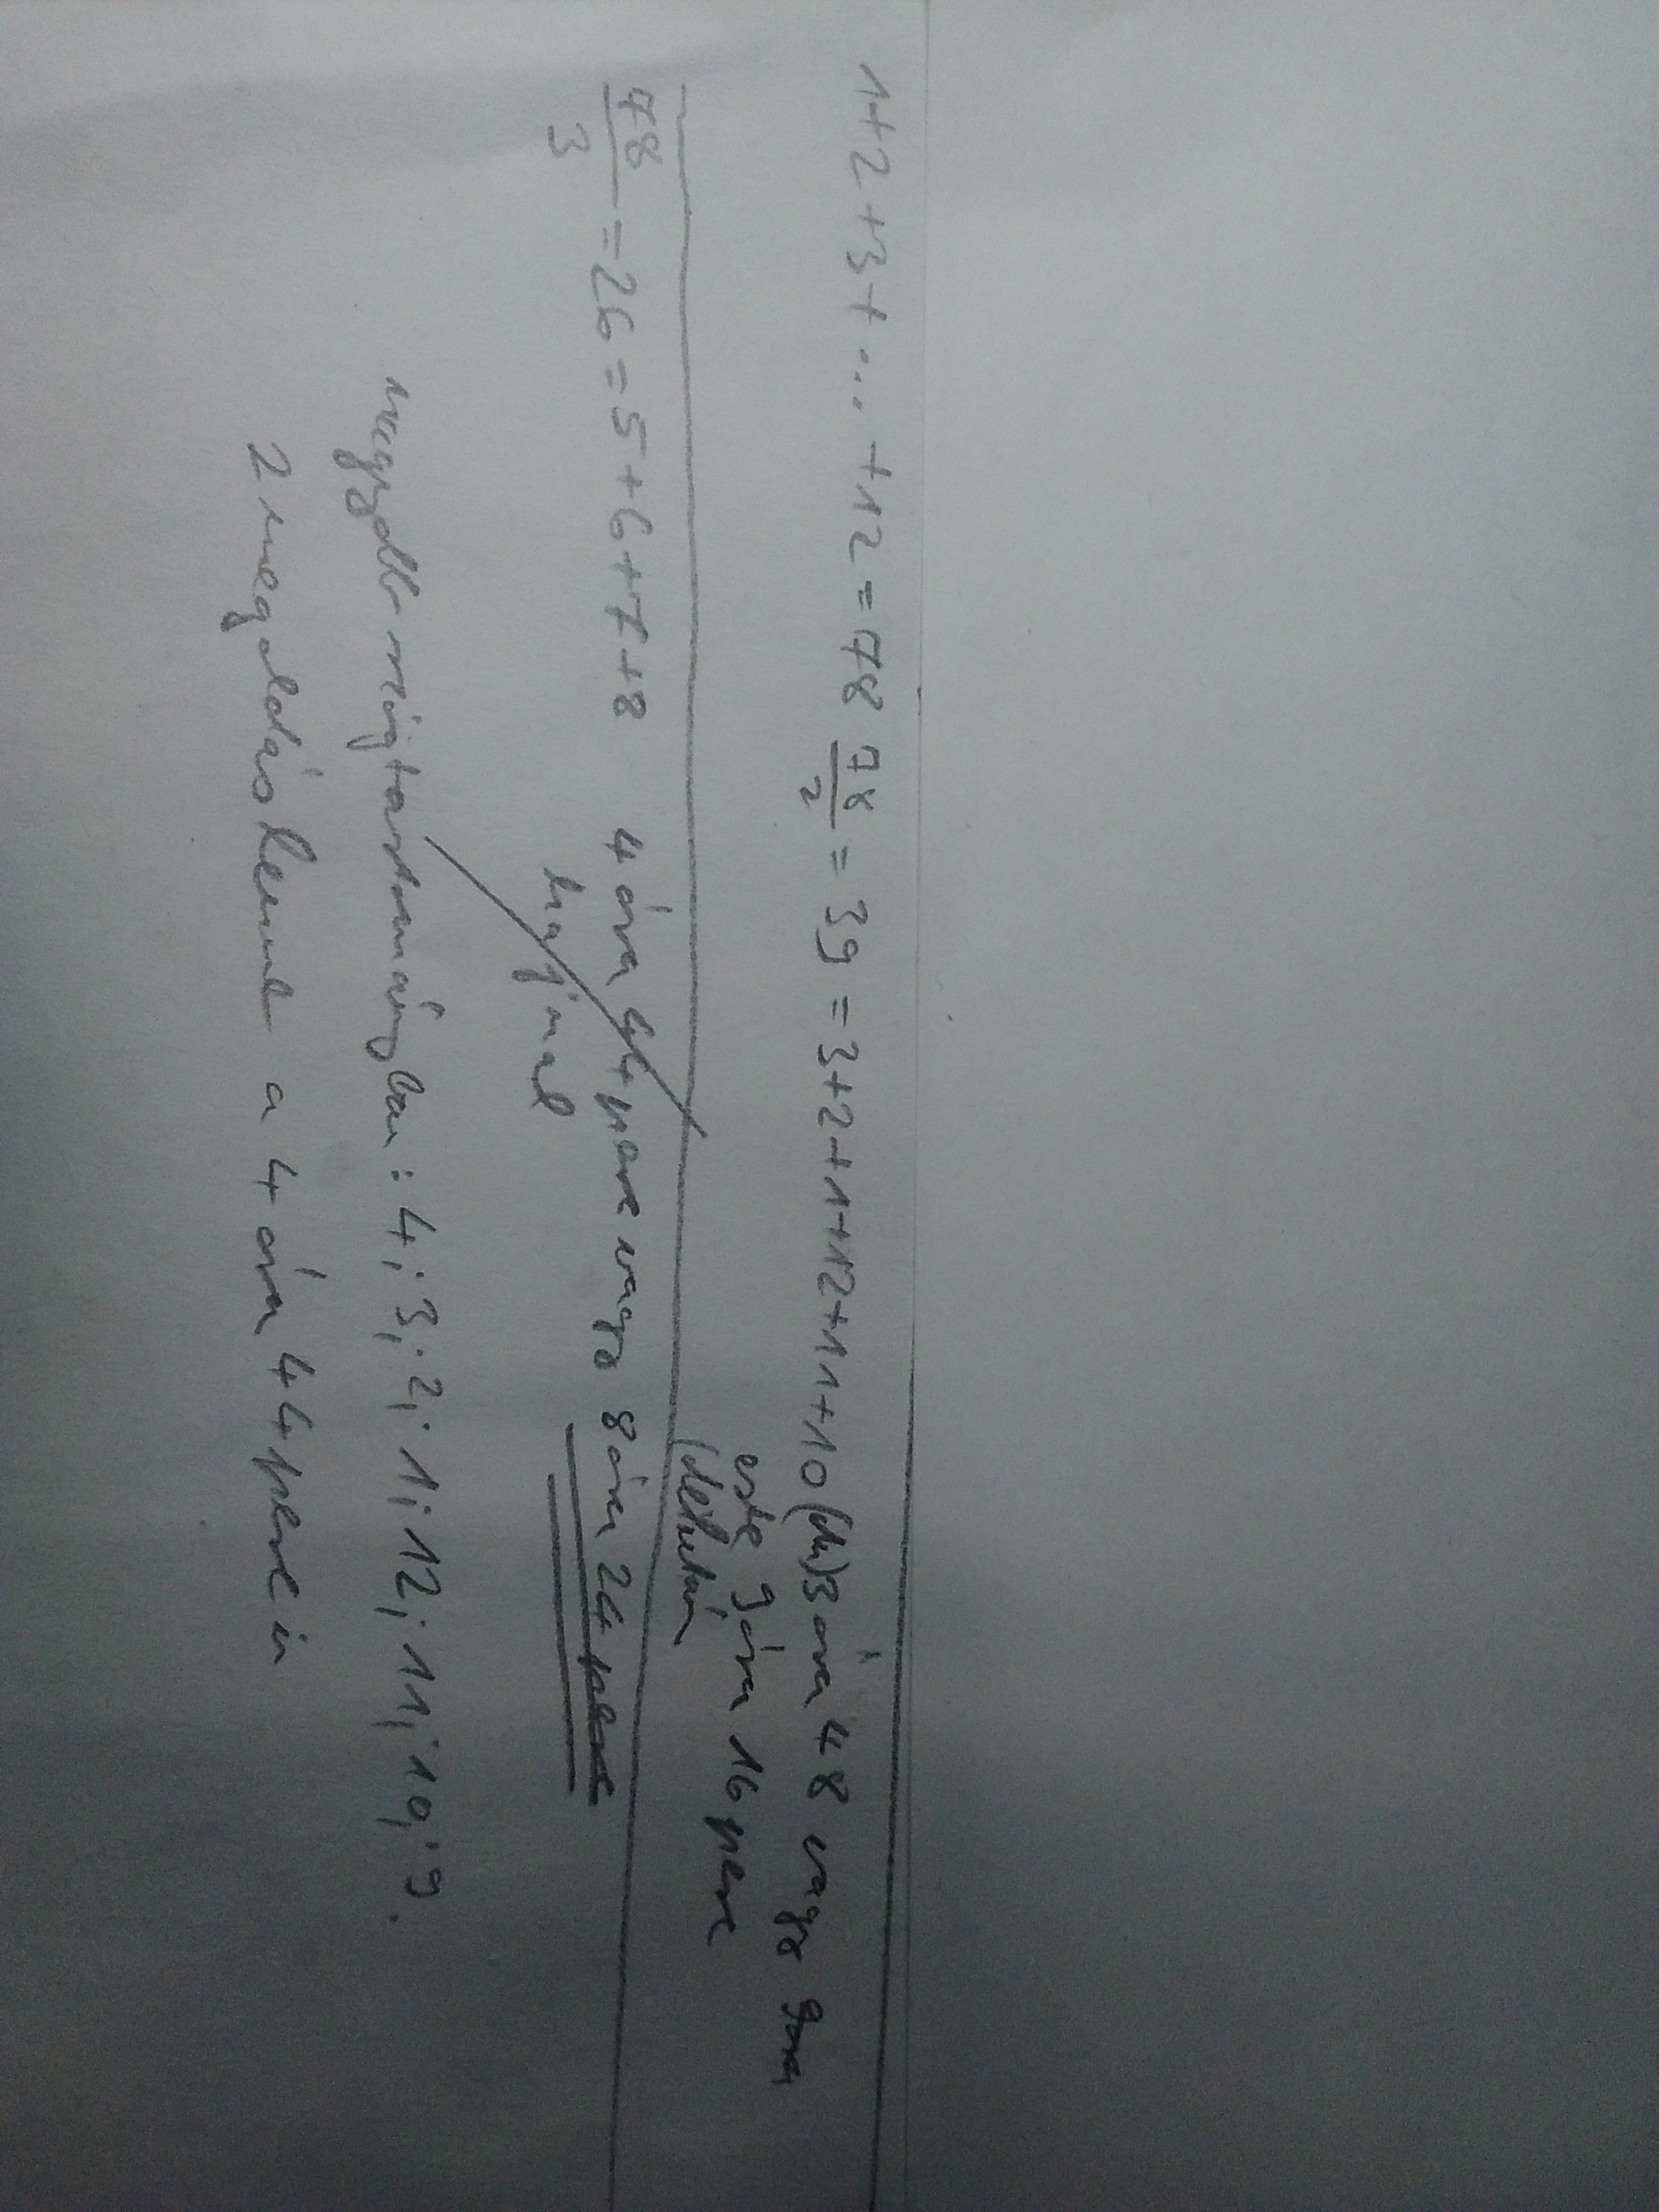 1+2+3+...+12=78 78/2 = 39 = 3+2+1+12+11+10 (du) 3 óra 48 vagy 9óra
este 9 óra 16 perc
(délután
78/3 = 26 = 5+6+7+8 4 óra 44 perc vagy 8 óra 24 perc
hajnal
négyzetben: 4; 3; 2; 1; 12; 11; 10; 9.
2 megoldás lenne a 4 óra 44 perc is